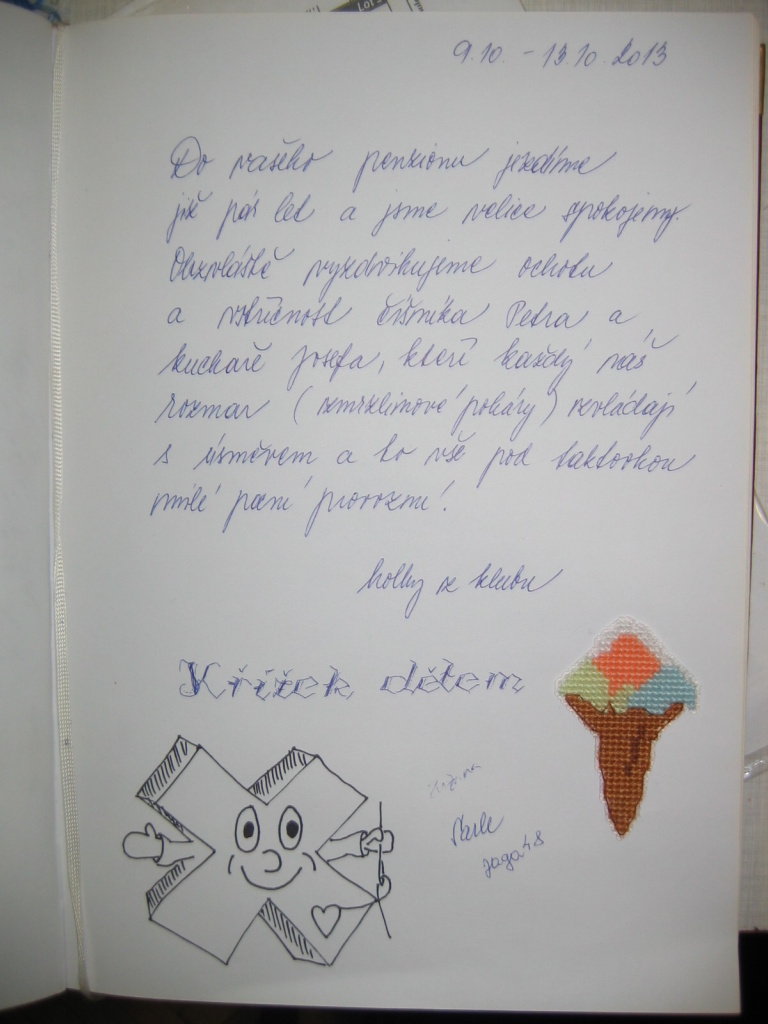 9.10. - 13.10.2013
Do vašeho penzionu jezdíme
již pár let a jsme velice spokojeny.
Obzvláště vyzdvihujeme ochotu
a vstřícnost číšníka Petra a
kuchaře Josefa, kteří každý náš
rozmar (zmrzlinové poháry) zvládají
s úsměvem a to vše pod taktovkou
milé paní provozní!
holky z klubu
Křížek dětem
jaga48